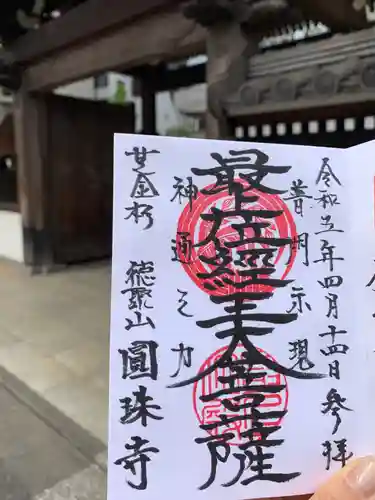 令和五年四月十四日参拝
普門示現
最上位經王大菩薩
神通之力
芝金杉 徳聚山 圓珠寺